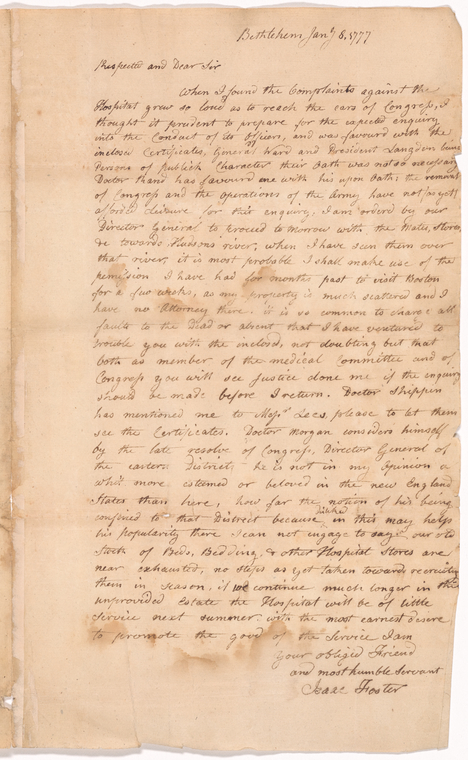 Bethlehem Jany 8. 1777
Respected and Dear Sir
When I found the Complaints against the
Hospital grew so loud as to reach the ears of Congress, I
thought it prudent to prepare for the expected enquiry
into the Conduct of its Officers, and was favoured with the
inclosed Certificates, General Ward and President Langdon being
Persons of publick Character their Oath was not so necessary
Doctor Shand has favoured me with his upon Oath; the removal
of Congress and the operations of the Army have not (as yet)
afforded Leisure for this enquiry, I am ordered by our
Director General to proceed to Morrow with the Mates, Stores,
& towards Hudsons river, when I have seen them over
that river, it is most probable I shall make use of the
permission I have had for months past to visit Boston
for a few weeks, as my property is much scattered and I
have no Attorney there. it is so common to charge all
faults to the Dead or absent that I have ventured to
trouble you with the inclosed, not doubting but that
both as member of the medical Committee and of
Congress you will see Justice done me if the enquiry
should be made before I return. Doctor Shippen
has mentioned me to Messrs Lees, please to let them
see the Certificates. Doctor Morgan considers himself
by the late resolve of Congress, Director General of
the eastern District; he is not in my Opinion a
whit more esteemed or beloved in the new England
States than here, how far the notion of his being
confined to that District because disliked in this may help
his popularity there I can not engage to say. our old
Stock of Beds, Bedding, & other Hospital Stores are
near exhausted, no steps as yet taken towards recruiting
them in season, if we continue much longer in this
unprovided Estate the Hospital will be of little
Service next summer. with the most earnest desire
to promote the good of the Service I am
your obliged Friend
and most humble servant
Isaac Foster